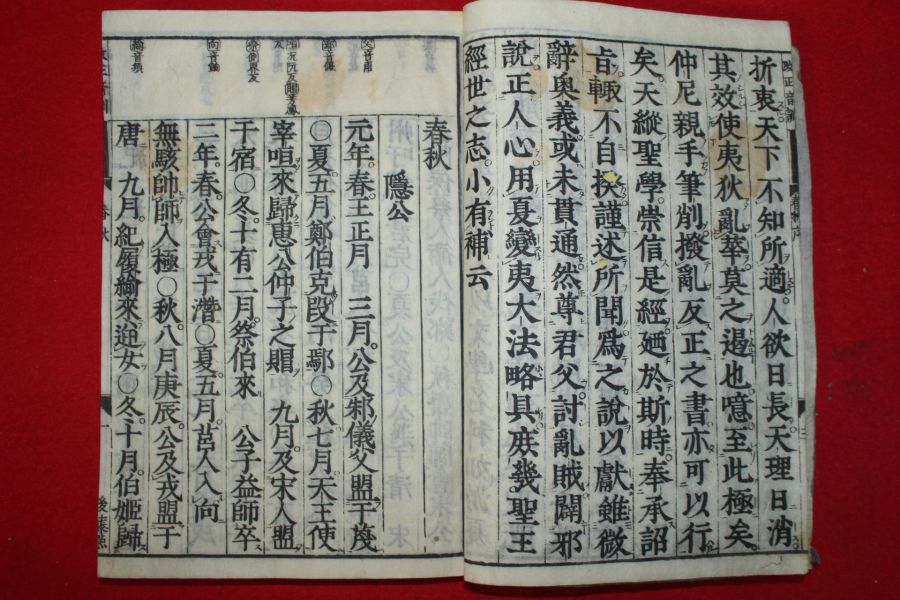 改正音訓
折衷天下不知所適人欲日長天理日消
其效使夷狄亂華莫之遏也噫至此極矣
仲尼親手筆削撥亂反正之書亦可以行
矣天縱聖學崇信是經廼於斯時奉承詔
旨輒不自揆謹述所聞爲之說以獻雖微
辭奧義或未貫通然尊君父討亂賊闢邪
說正人心用夏變夷大法略具庻幾聖王
經世之志小有補云
春秋
隱公
元年春王正月 三月公及邾儀父盟于蔑
○夏五月鄭伯克段于鄢○秋七月天王使
宰咺來歸惠公仲子之賵 九月及宋人盟
于宿○冬十有二月祭伯來 公子益師卒
二年春公會戎于潛○夏五月莒人入向
無駭帥師入極○秋八月庚辰公及戎盟于
唐 九月紀履緰來逆女○冬十月伯姬歸
春秋
一
後藤點